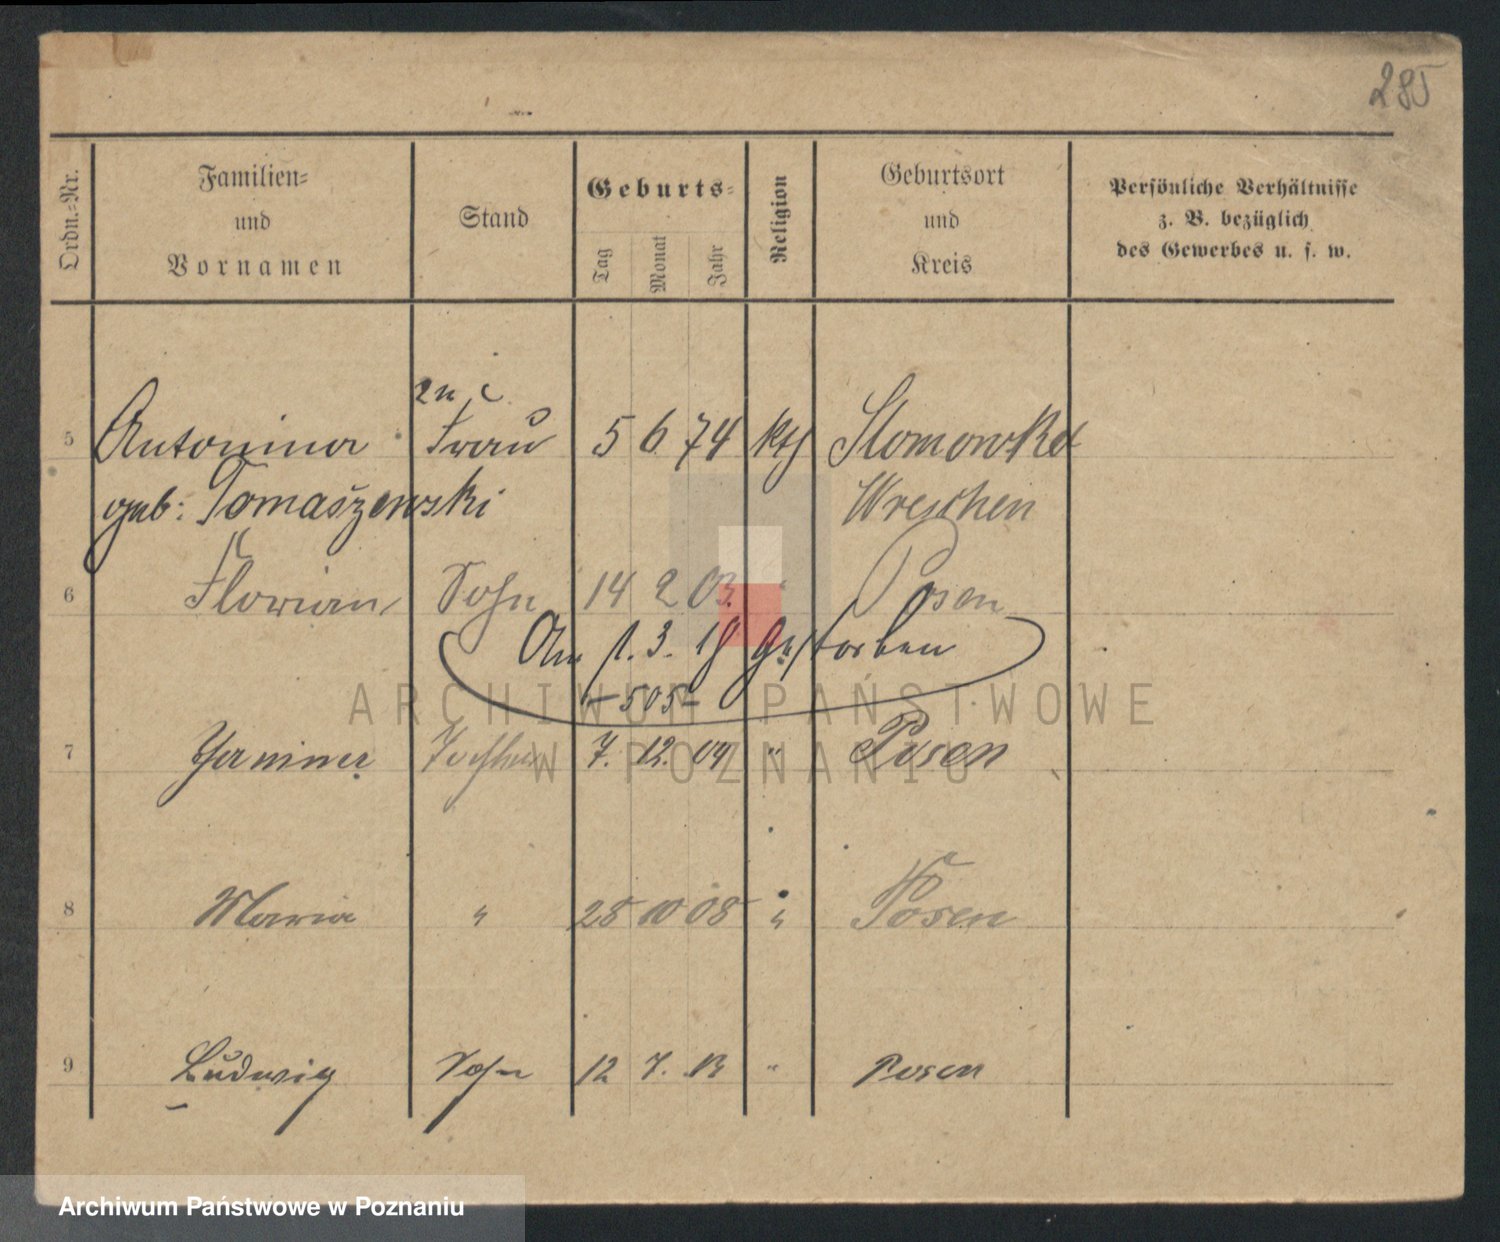 285
Ordn.-Nr.
Familien- und Vornamen
Stand
Geburts-
Tag Monat Jahr
Religion
Geburtsort und Kreis
Persönliche Verhältnisse
z. B. bezüglich
des Gewerbes u. s. w.
5 Antonina Frau 5 6 74 kth Slomowko
geb: Tomaszewski Wreschen
6 Florian Sohn 14 2 03. " Posen
Am 1. 3. 18 gestorben
- 505 -
7 Janina Tochter 7. 12. 04 " Posen
8 Maria " 28 10 08 " Posen
9 Ludwig Sohn 12 7. 13 " Posen
ARCHIWUM PAŃSTWOWE
W POZNANIU
Archiwum Państwowe w Poznaniu